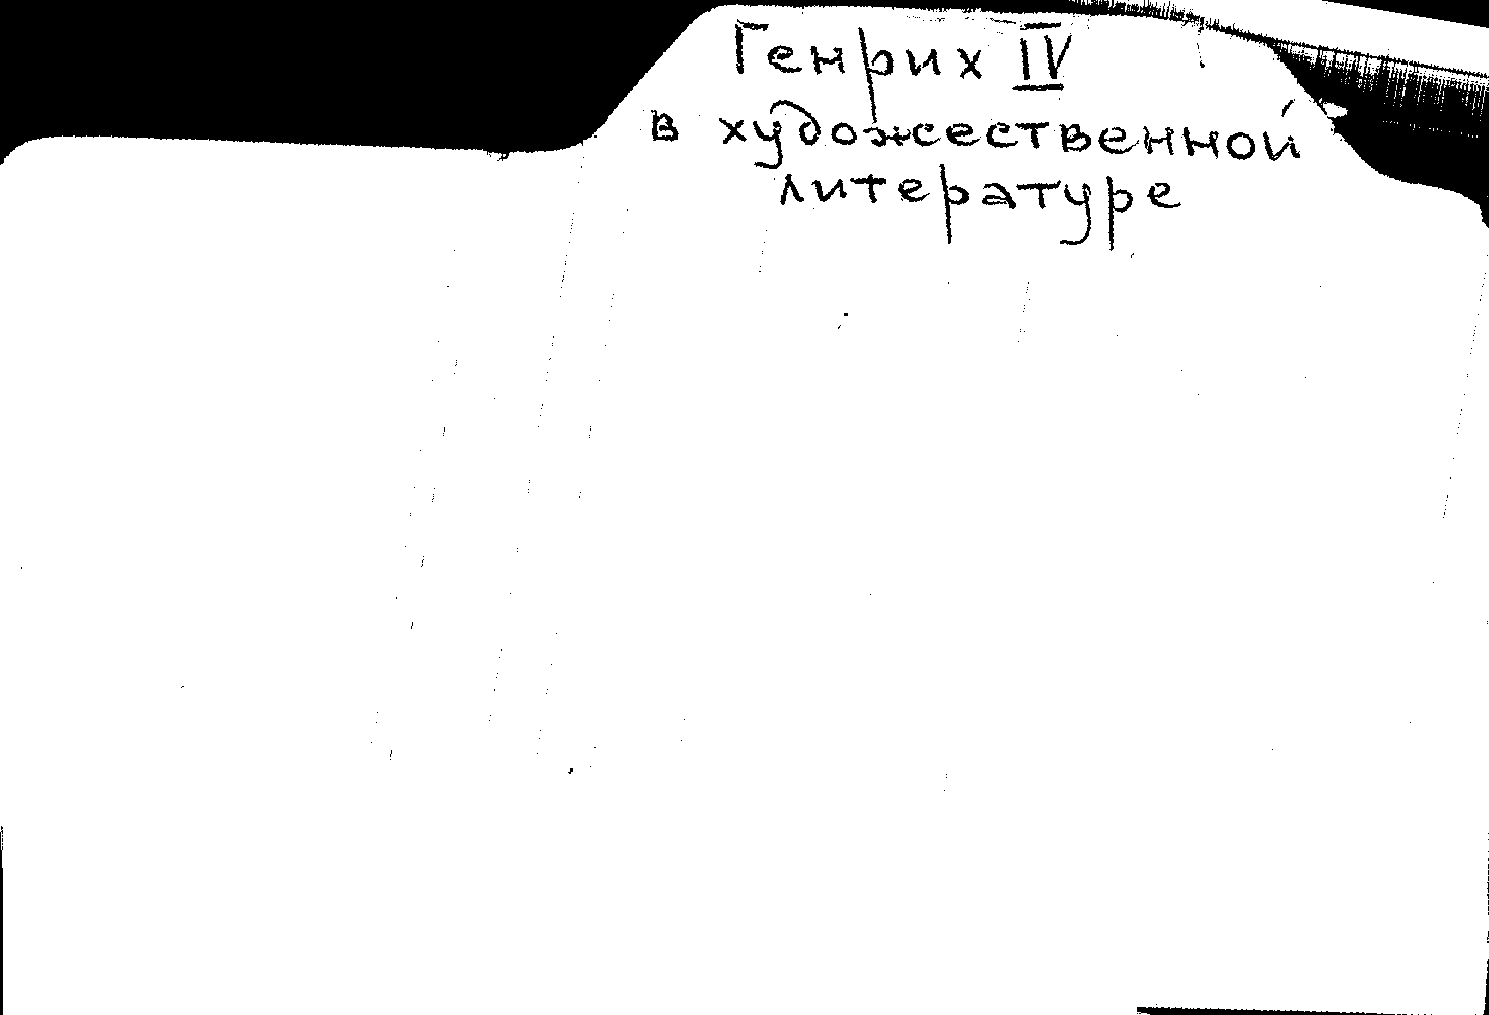 Генрих IV
в художественной
литературе